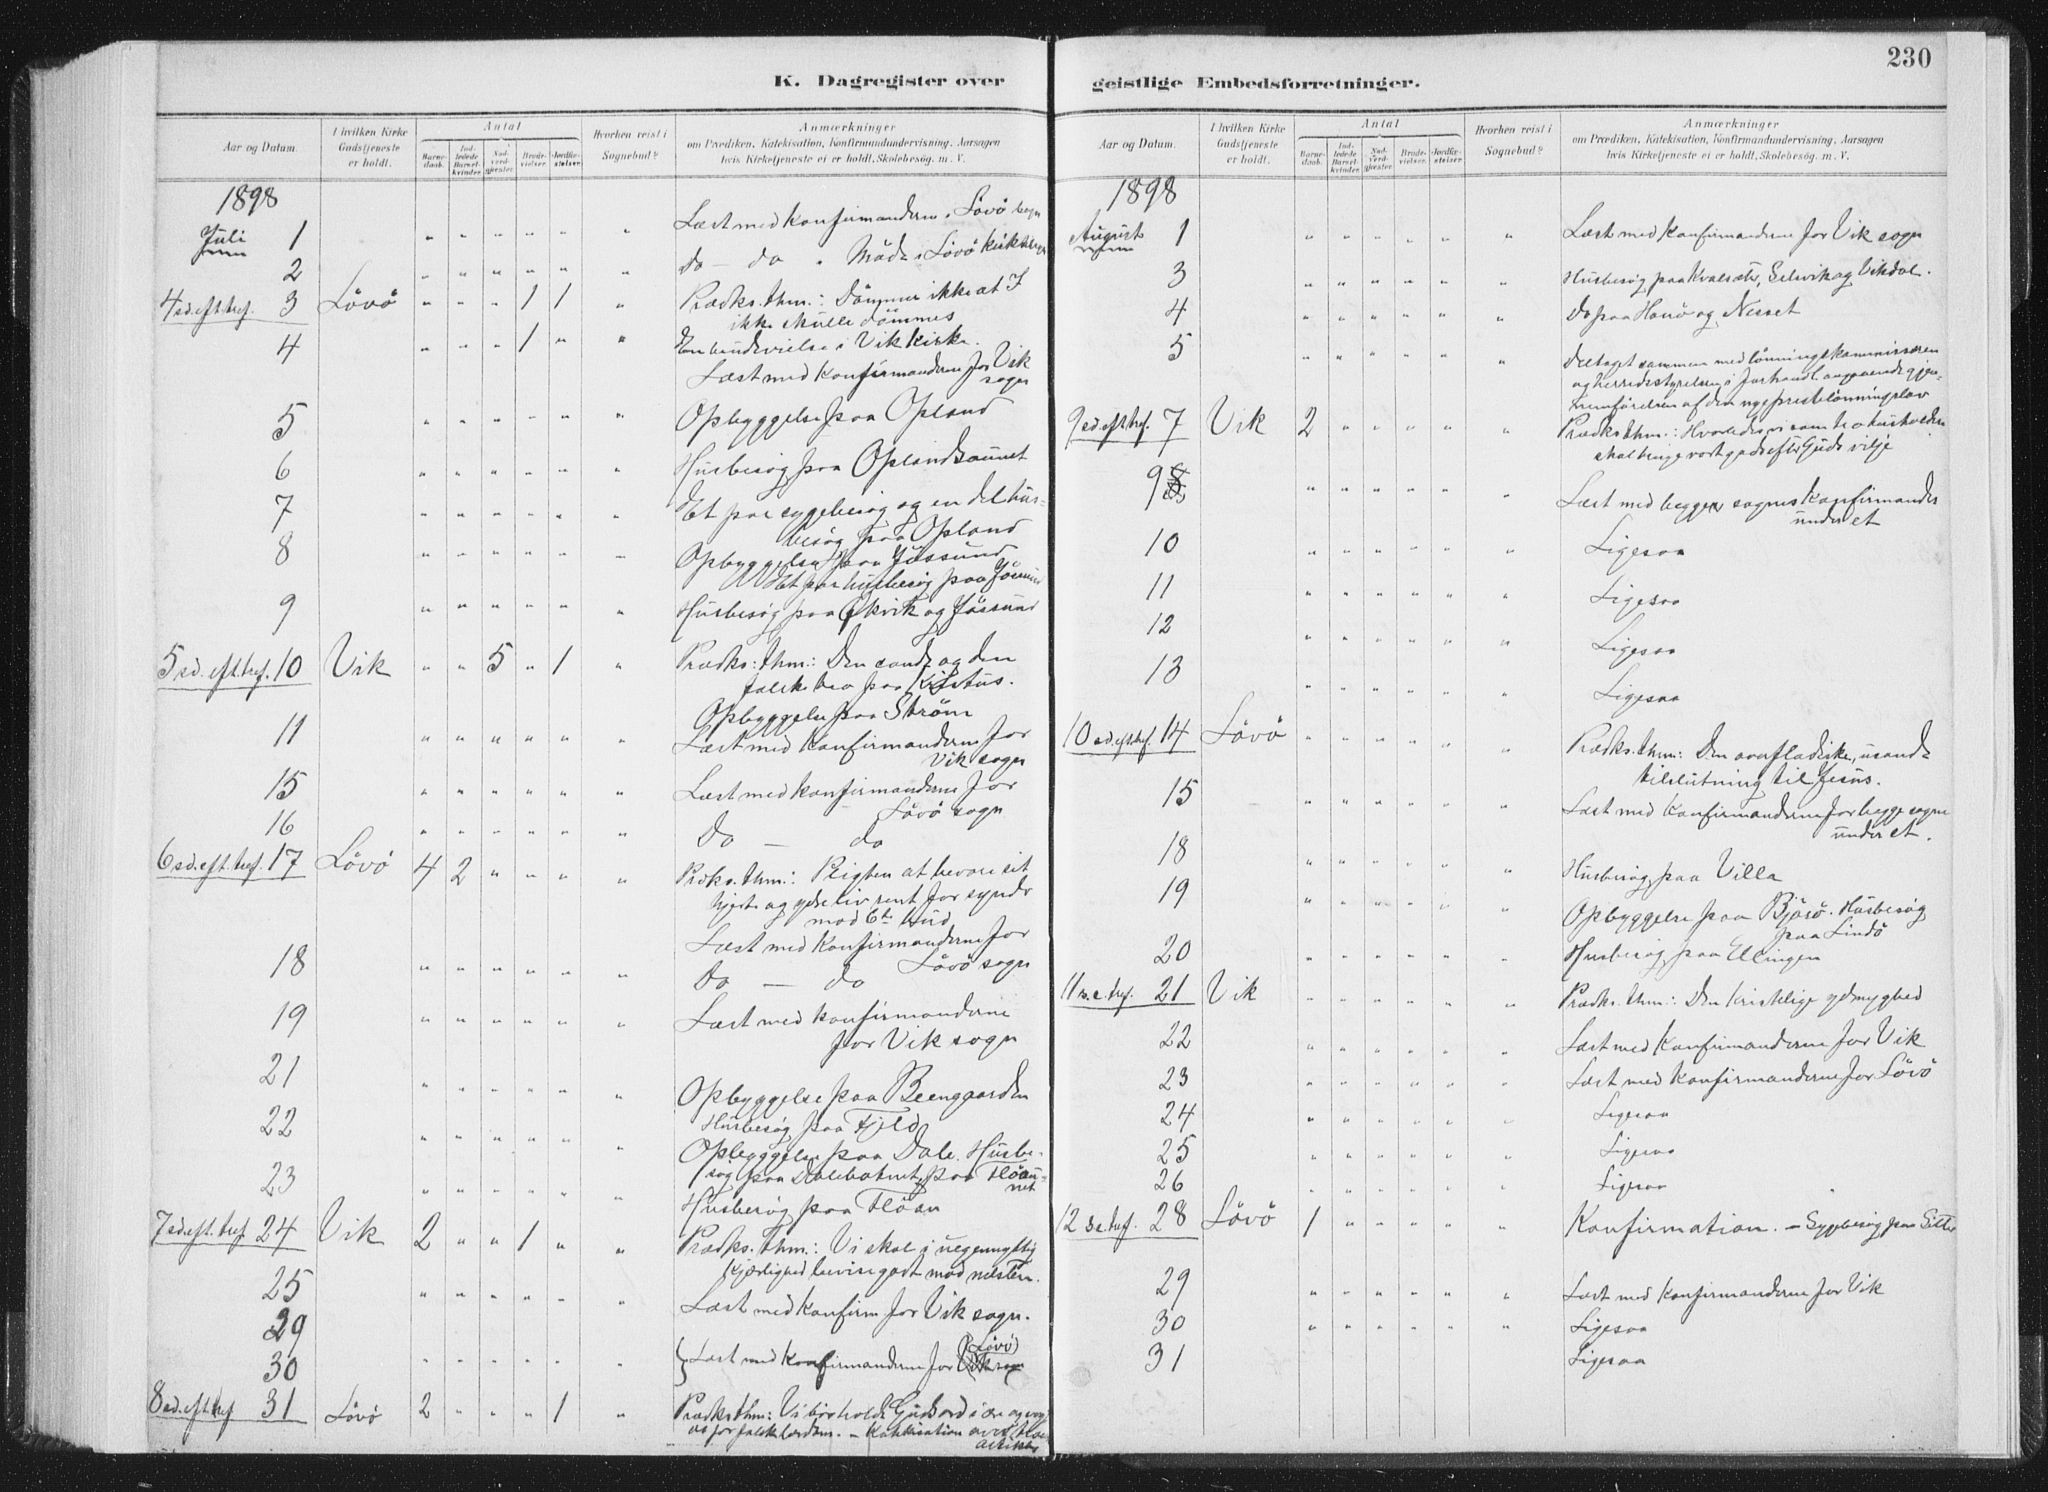 K. Dagregister over
Aar og Datum.
I hvilken Kirke Gudstjeneste er holdt.
Antal
Barne-daab.
Ind-ledede Barsel-kvinder.
Nad-verd-gjæster.
Brude-vielser.
Jordfæ-stelser.
Hvorhen reist i Sognebud?
Anmærkninger
om Prædiken, Katekisation, Konfirmandundervisning, Aarsagen
hvis Kirketjeneste ei er holdt, Skolebesøg. m. V.
1898
Juli 1 " " " " " " Læst med Konfirmanderne i Lövö sogn
2 " " " " " " do - do . Möde i Lövö
4 sd. eft. tref. 3 Lövö " " " 1 1 " Prædks. thm.: Dömmer ikke at I
ikke skulle dömmes
4 " " " 1 " " En brudevielse i Vik Kirke.
Læst med Konfirmanderne for Vik
sogn
5 " " " " " " Opbyggelse paa Opland
6 " " " " " " Husbesög paa Oplandsaunet
7 " " " " " " Et par sygebesög og en del hus-
besög paa Opland
8 " " " " " " Opbyggelse paa Jössund
Et par husbesög paa Jössund
9 " " " " " " Husbesög paa Økvik og Jössund
5 sd. eft. tref. 10 Vik " " 5 " 1 " Prædks. thm.: Den sande og den
falske tro paa Kristus.
Opbyggelse paa Ström
11 " " " " " " Læst med Konfirmanderne for
Vik sogn
15 " " " " " " Læst med Konfirmanderne for
Lövö sogn
16 " " " " " " Do - do
6 sd. eft. tref. 17 Lövö 4 2 " " " " Prædks. thm.: Pligten at bevare sit
hjerte og ydre liv rent for synder
mod 6te bud
Læst med Konfirmanderne for
Lövö sogn
18 " " " " " " Do - do
19 " " " " " " Læst med Konfirmanderne
for Vik sogn
21 " " " " " " Opbyggelse paa Beengaarden
Husbesög paa Fjeld
22 " " " " " " Opbyggelse paa Dale. Husbe-
sög paa Dalebotnet, paa Flöau-
net
23 " " " " " " Husbesög paa Flöan
7 sd. eft. tref. 24 Vik 2 " " 1 " " Prædks. thm.: Vi skal i uegennyttig
Kjærlighed bevise godt mod næsten.
25 " " " " " " Læst med Konfirm for Vik sogn.
29
30 " " " " " " Læst med Konfirmanderne for (Lövö)
8 sd. eft. tref. 31 Lövö 2 " " " 1 " Prædks thm: Vi bör holde Guds ord i ære og vogte
os for falsk lærdom. - Katekisation over
artikler
230
geistlige Embedsforretninger.
Aar og Datum.
I hvilken Kirke Gudstjeneste er holdt.
Antal
Barne-daab.
Ind-ledede Barsel-kvinder.
Nad-verd-gjæster.
Brude-vielser.
Jordfæ-stelser.
Hvorhen reist i Sognebud?
Anmærkninger
om Prædiken, Katekisation, Konfirmandundervisning, Aarsagen
hvis Kirketjeneste ei er holdt, Skolebesøg. m. V.
1898
August 1 " " " " " " Læst med Konfirmanderne for Vik sogn
3 " " " " " " Husbesög paa Kvalsæter, Selvik og Vikdal.
4 " " " " " " Do paa Horsö og Nesset
5 " " " " " " Deltaget sammen med lönningskommissæren
og herredsstyrelsen i forhandl. angaaende gjen-
nemförelsen af den nye prestelönningslov
9 sd. eft tref. 7 Vik 2 " " " " " Prædks thm.: Hvorledes vi som tro husholdere
skal bruge vort gods efter Guds vilje
9 " " " " " " Læst med begge sognes Konfirmander
under et
10 " " " " " " Ligesaa
11 " " " " " " Ligesaa
12 " " " " " " Ligesaa
13 " " " " " " Ligesaa
10 sd. eft tref. 14 Lövö " " " " " " Prædks. thm: Den overfladiske, usande
tilslutning til Jesus.
15 " " " " " " Læst med Konfirmanderne for begge sogne
under et.
18 " " " " " " Husbesög paa Villa
19 " " " " " " Opbyggelse paa Bjösö. Husbesög
paa Lindö
20 " " " " " " Husbesög paa Ellingen
11 s. e. tref. 21 Vik " " " " " " Prædks. thm: Den kristelige ydmyghed
22 " " " " " " Læst med Konfirmanderne for Vik
23 " " " " " " Læst med Konfirmanderne for Lövö
24 " " " " " " Ligesaa
25 " " " " " " Ligesaa
26 " " " " " " Ligesaa
12 s e tref. 28 Lövö 1 " " " " " Konfirmation. - Sygebesög paa Sitter
29 " " " " " " Læst med Konfirmanderne for Vik
30 " " " " " " Ligesaa
31 Ligesaa